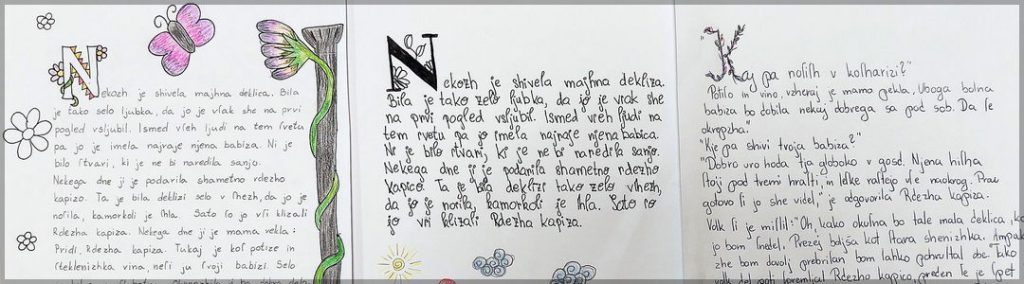 Nekozh je shivela majhna deklica. Bila
je tako selo ljubka, da jo je vſak she na prvi
pogled vsljubil. Ismed vſeh ljudi na tem ſvetu
pa jo je imela najraje njena babiza. Ni je
bilo ſtvari, ki je ne bi naredila sanjo.
Nekega dne ji je podarila shametno rdezho
kapizo. Ta je bila deklizi selo v ſhezh, da jo je
noſila, kamorkoli je ſhla. Sato ſo jo vſi klizali
Rdezha kapiza. Nekega dne ji je mama rekla:
Pridi, Rdezha kapiza. Tukaj je koſ potize in
ſteklenizhka vina, neſi ju ſvoji babizi. Selo
Nekozh je shivela majhna dekliza.
Bila je tako zelo ljubka, da jo je vſak she
na prvi pogled vsljubil. Ismed vſeh ljudi na
tem ſvetu pa jo je imela najraje njena babica.
Ni je bilo ſtvari, ki je ne bi naredila sanjo.
Nekega dne ji je podarila shametno rdezho
kapico. Ta je bila deklizi tako zelo vſhezh,
da jo je noſila, kamorkoli je ſhla. Sato ſo
jo vſi klizali Rdezha kapiza.
"Kaj pa noſiſh v koſharizi?"
Potizo in vino, vzheraj je mama pekla. Uboga bolna
babiza bo dobila nekaj dobrega sa pod sob. Da ſe
okrepzha."
"Kje pa shivi tvoja babiza?"
"Dobro uro hoda tja globoko v gosd. Njena hiſha
ſtoji pod tremi hraſti, in leſke raſtejo vſe naokrog. Prav
gotovo ſi jo she videl," je odgovorila Rdezha kapiza.
Volk ſi je miſlil: "Oh, kako okuſna bo tale mala deklica, ko
jo bom ſnedel. Prezej boljſha kot ſtara shenizhka. Ampak
zhe bom dovolj prebriſan bom lahko pohruſtal obe. Tako